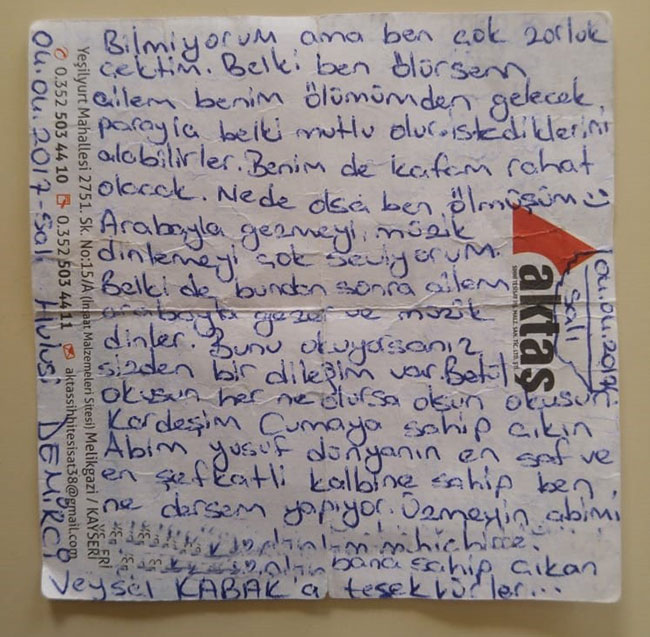 Bilmiyorum ama ben çok zorluk
çektim. Belki ben ölürsem
ailem benim ölümümden gelecek
parayla belki mutlu olur. istediklerini
alabilirler. Benim de kafam rahat
olacak. Nede olsa ben ölmüşüm
Arabayla gezmeyi, müzik
dinlemeyi çok seviyorum.
Belki de bundan sonra ailem
arabayla gezer ve müzik
dinler. Bunu okuyorsanız
sizden bir dileğim var. Betül
okusun her ne olursa olsun okusun
Kardeşim Cumaya sahip çıkın
Abim yusuf dünyanın en saf ve
en şefkatli kalbine sahip ben
ne dersem yapıyor. Üzmeyin abimi
bana sahip çıkan
Veysel KABAK'a teşekkürler...
04.04.2017-Salı Hulusi DEMİRCİ
04.04.2017
Salı
aktaş
Yeşilyurt Mahallesi 2751. Sk. No:15/A (İnşaat Malzemeleri Sitesi) Melikgazi / KAYSERİ
0.352 503 44 10 0.352 503 44 11 aktassihhitesisat38@gmail.com